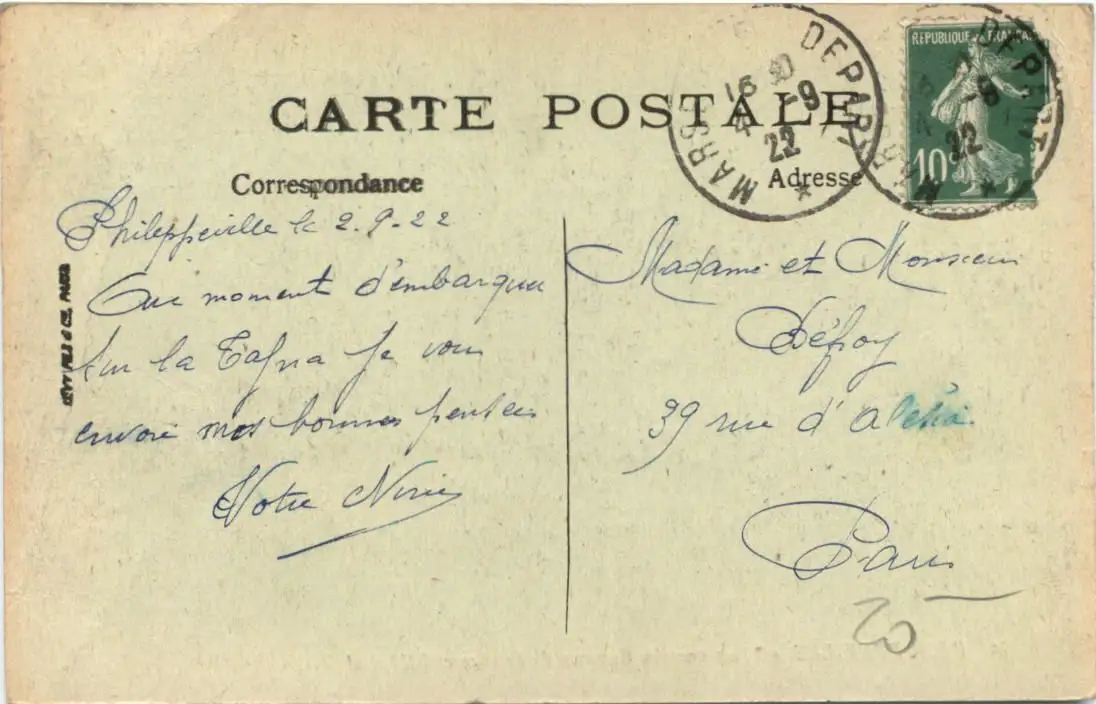 CARTE POSTALE
Correspondance
Adresse
DEPART
MARS
15 30
4 -9
22
REPUBLIQUE FRANÇAISE
10c
DEPART
-9
22
Philippeville le 2-9-22
Au moment d'embarquer
sur la Tafna je vous
envoie mes bonnes pensées
Votre Ninie
LÉVY FILS & CIE, PARIS
Madame et Monsieur
Défroy
39 rue d'Alésia
Paris
20